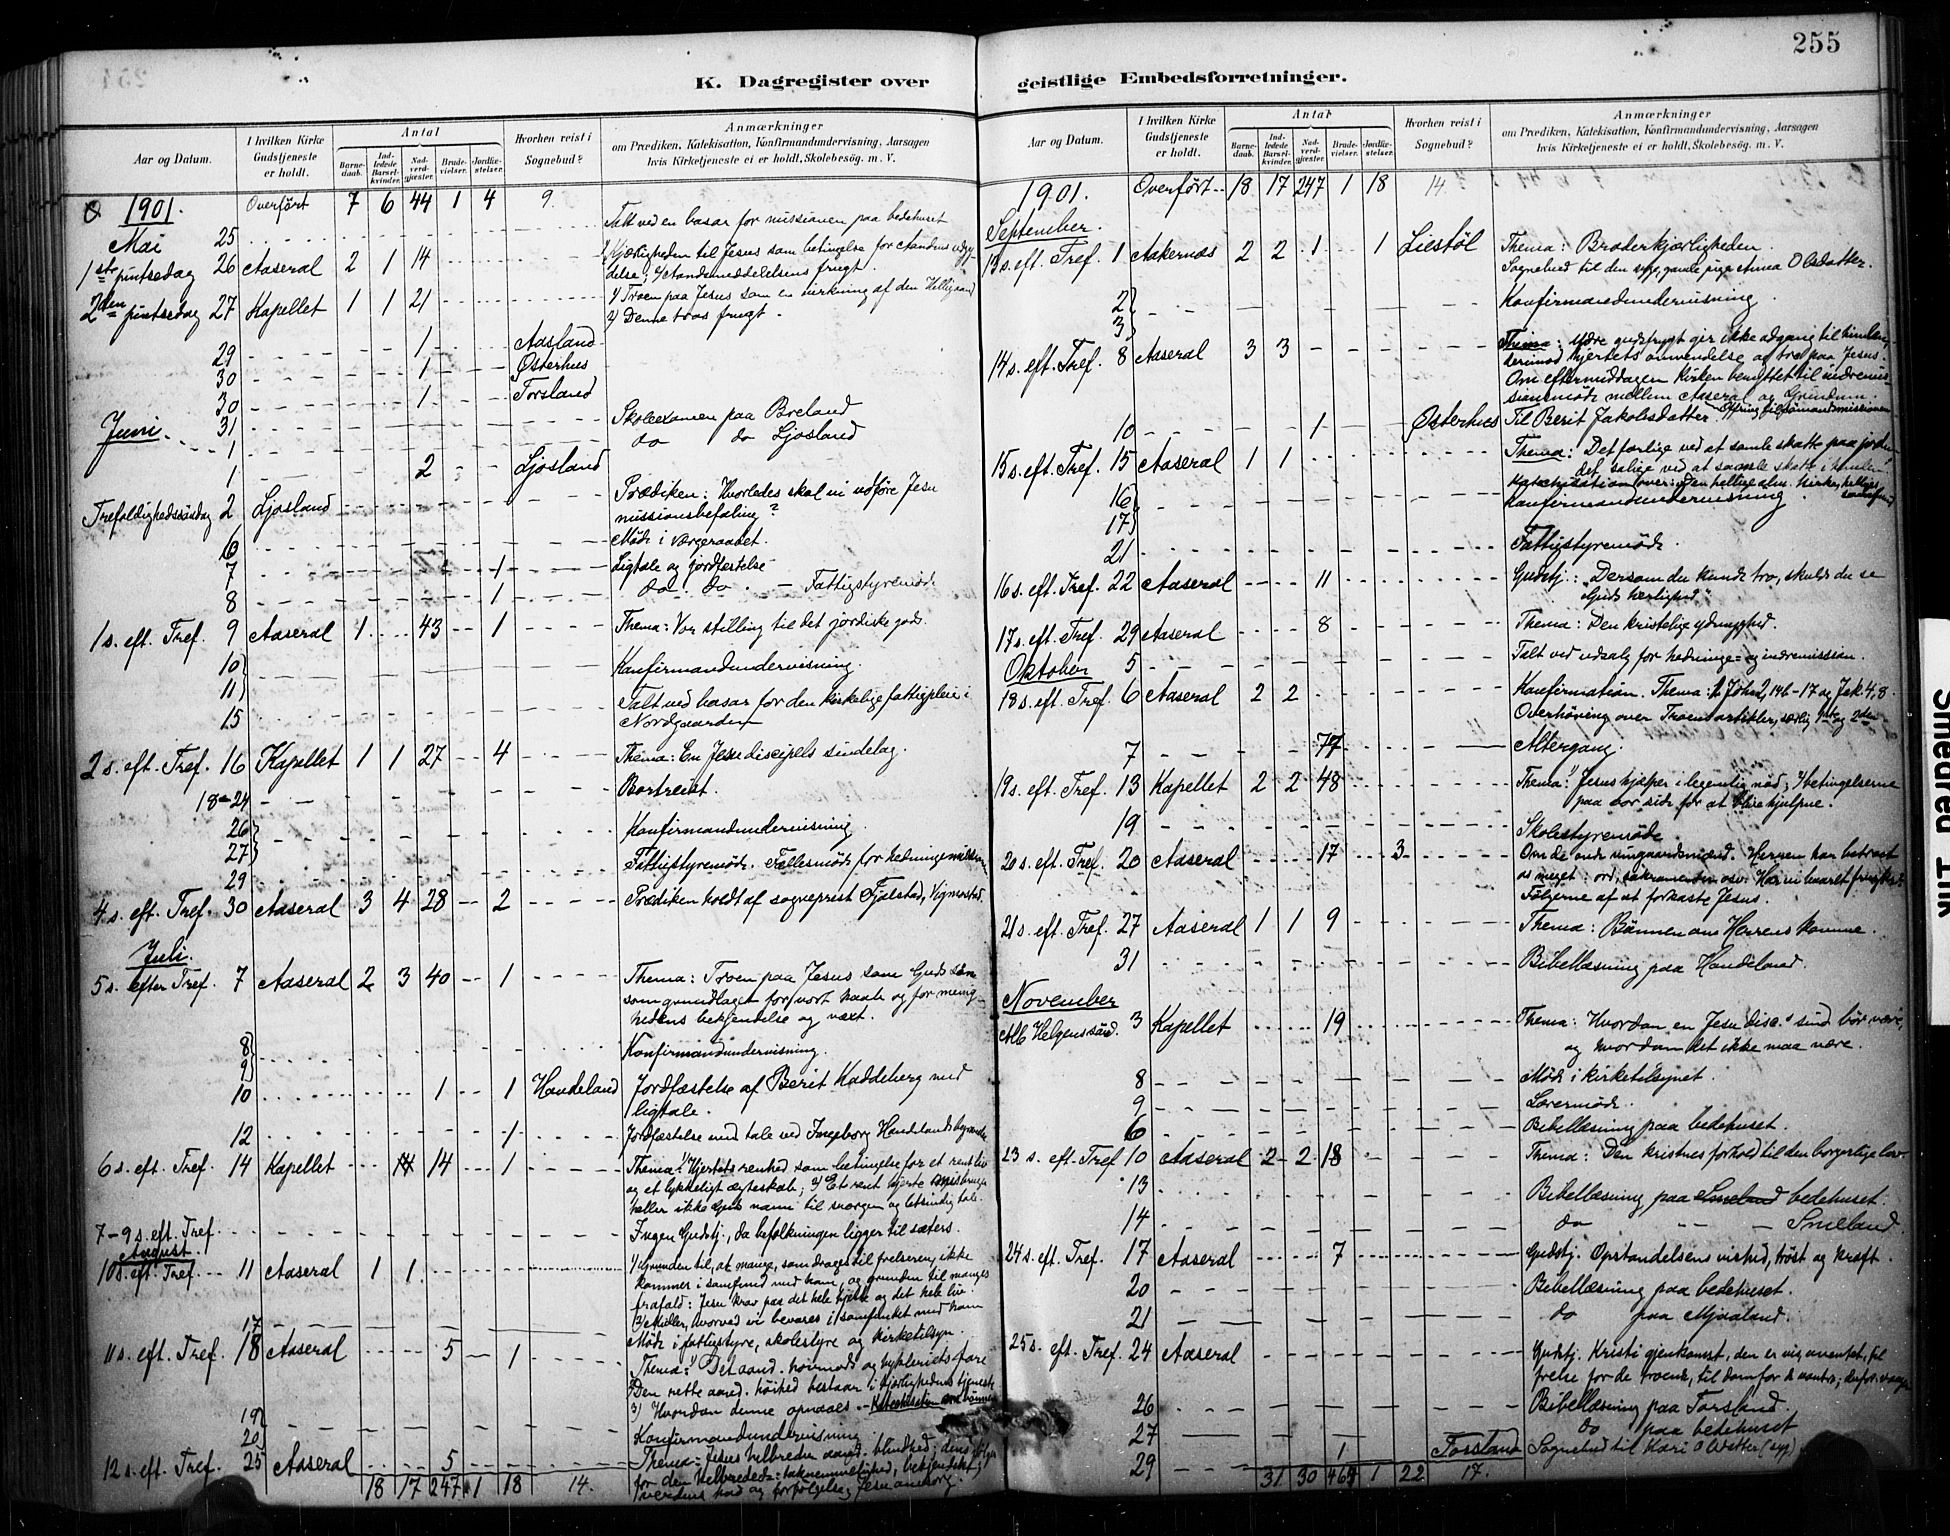 255
K. Dagregister over geistlige Embedsforretninger.
Aar og Datum.
I hvilken Kirke Gudstjeneste er holdt.
Antal
Barnedaab.
Indledede Barselkvinder.
Nadverdgjæster.
Brudevielser.
Jordfæstelser.
Hvorhen reist i Sognebud?
Anmærkninger
om Prædiken, Katekisation, Konfirmandundervisning, Aarsagen
hvis Kirketjeneste ei er holdt, Skolebesøg. m. V.
1901. Overført 7 6 44 1 4 9.
Mai 25 Talt ved en basar for missionen paa bedehuset
1ste pintsedag 26 Aaseral 2 1 14 1) Kjærligheden til Jesus som betingelse for Aandens
delse; 2) Aandsmeddelelsens frugt.
2den pintsedag 27 Kapellet 1 1 21 1) Troen paa Jesus som en virkning af den Helligaand
2) Denne troes frugt.
29 1 Aasland
30 1 Østerhus
30 1 Torsland
31 Skoleexamen paa Breland
Juni. 1 do do Ljosland
1 2 Ljosland
Trefoldighedssøndag 2 Ljosland Prædiken: Hvorledes skal vi udføre Jesu
missionsbefaling?
6 Møde i værgeraadet.
7 1 Ligtale og jordfæstelse
8 1 do. do. - Fattigstyremøde
1 s. eft. Tref. 9 Aaseral 1 43 1 Thema: Vor stilling til det jordiske gods.
10 } Konfirmandundervisning.
11 }
15 Talt ved basar for den kirkelige fattigpleie i
Nordgaarden
2 s. eft. Tref. 16 Kapellet 1 1 27 4 Thema: En Jesu discipels sindelag.
18-24 Bortreist.
26 } Konfirmandundervisning.
27 }
29 Fattigstyremøde. Fællesmøde for hedningemission
4 s. eft. Tref. 30 Aaseral 3 4 28 2 Prædiken holdt af sogneprest Fjelstad, Vigmostad.
Juli.
5 s. efter Tref. 7 Aaseral 2 3 40 1 Thema: Troen paa Jesus som Guds søn
som grundlaget for vort haab og for menig-
hedens bekjendelse og vækst.
8 } Konfirmandundervisning.
9 }
10 1 1 Handeland Jordfæstelse af Berit Haddeberg med
ligtale.
12 1 Jordfæstelse med tale ved Ingeborg Handelands
6 s. eft. Tref. 14 Kapellet 14 1 Thema: 1) Hjertets renhed som betingelse for et rent liv
og et lykkeligt ægteskab; 2) Et rent hjerte misbruger
heller ikke Guds navn til sværgen og letsindig tale.
7-9 s. eft. Tref. Ingen Gudstj., da befolkningen ligger til sæters.
August
10 s. eft. Tref. 11 Aaseral 1 1. 1) Grunden til, at mange, som drages til frelseren, ikke
kommer i samfund med ham, og grunden til manges
frafald: Jesu krav paa det hele hjerte og det hele liv.
2) Midler, hvorved vi bevares i samfundet med ham
17 Møde i fattigstyre, skolestyre og kirketilsyn.
11 s. eft. Tref. 18 Aaseral 5 1 Thema: 1) Det aand. hovmods og hykleriets fare
2) Den rette aand. høihed bestaar i kjærlighedens tjeneste
3) Hvordan denne opnaaes. - Katekisation om bønnen
19 } Konfirmandundervisning
20 }
12 s. eft. Tref. 25 Aaseral 5 Thema: Jesus helbreder aand. blindhed; dens følger
for den helbredede: taknemmelighed, bekjendelse;
verdens had og forfølgelse; Jesu omsorg.
18 17 247 1 18 14.
Aar og Datum.
I hvilken Kirke Gudstjeneste er holdt.
Antal
Barnedaab.
Indledede Barselkvinder.
Nadverdgjæster.
Brudevielser.
Jordfæstelser.
Hvorhen reist i Sognebud?
Anmærkninger
om Prædiken, Katekisation, Konfirmandundervisning, Aarsagen
hvis Kirketjeneste ei er holdt, Skolebesøg. m. V.
1901. Overført 18 17 247 1 18 14
September.
13 s. eft. Tref. 1 Aakernæs 2 2 1 1 Liestøl Thema: Broderkjærligheden
Sognebud til den syge, gamle pige Anna Olsdatter.
2 } Konfirmandundervisning.
3 }
14 s. eft. Tref. 8 Aaseral 3 3 Thema: Ydre gudsfrygt gir ikke adgang til himlen,
derimod hjertets omvendelse og tro paa Jesus.
Om eftermiddagen kirken benyttet til indremis-
sionsmøde mellem Aaseral og Grindum.
10 1 Østerhus Til Berit Jakobsdatter. Ofring til sømandsmissionen
15 s. eft. Tref. 15 Aaseral 1 1 Thema: Det farlige ved at samle skatte paa jorden
det salige ved at samle skatte i himlen.
Katekisation over: den hellige alm. kirke, helliges samfund
16 } Konfirmandundervisning
17 }
21 Fattigstyremøde.
16 s. eft. Tref. 22 Aaseral 11 Gudstj.: "Dersom du kunde tro, skulde du se
Guds herlighed"
17 s. eft. Tref. 29 Aaseral 8 Thema: Den kristelige ydmyghed.
Oktober 5 Talt ved udsalg for hedninge- og indremission.
18 s. eft. Tref. 6 Aaseral 2 2 Konfirmation. Thema: 1 Joh 2, 14b-17 og Jak 4, 8.
Overhøring over Troens artikler, særlig 1ste og 2den
7 77 Altergang.
19 s. eft. Tref. 13 Kapellet 2 2 48 Thema: 1) Jesus hjælper i legemlig nød; 2) betingelserne
paa vor side for at blive hjulpne.
19 Skolestyremøde
20 s. eft. Tref. 20 Aaseral 17 3 Om de onde vingaardsmænd. Herren har betroet
os meget: ord, sakramenter osv. Har vi baaret frugt?
Følgerne af at forkaste Jesus.
21 s. eft. Tref. 27 Aaseral 1 1 9 Thema: Bønnen om Herrens komme.
31 Bibellæsning paa Handeland.
November
Alle Helgens sønd. 3 Kapellet 19 Thema: Hvordan en Jesu disc.s sind bør være,
og hvordan det ikke maa være.
8 Møde i kirketilsynet.
9 Lærermøde.
6 Bibellæsning paa bedehuset.
23 s. eft. Tref 10 Aaseral 2 2 18 Thema: Den kristnes forhold til den borgerlige lov
13 Bibellæsning paa Smeland bedehuset.
14 do — — Smeland
24 s. eft. Tref. 17 Aaseral 7 Gudstj. Opstandelsens vished, trøst og kraft.
20 Bibellæsning paa bedehuset.
21 do paa Mjaaland.
25 s. eft. Tref. 24 Aaseral Gudstj. Kristi gjenkomst, den er vis, uventet, til
frelse for de troende, til dom for de vantro; derfor:
26 Bibellæsning paa Torsland.
27 do paa bedehuset
29 1 Torsland Sognebud til Kari O (syg)
31 30 464 1 22 17.
Smeared Ink